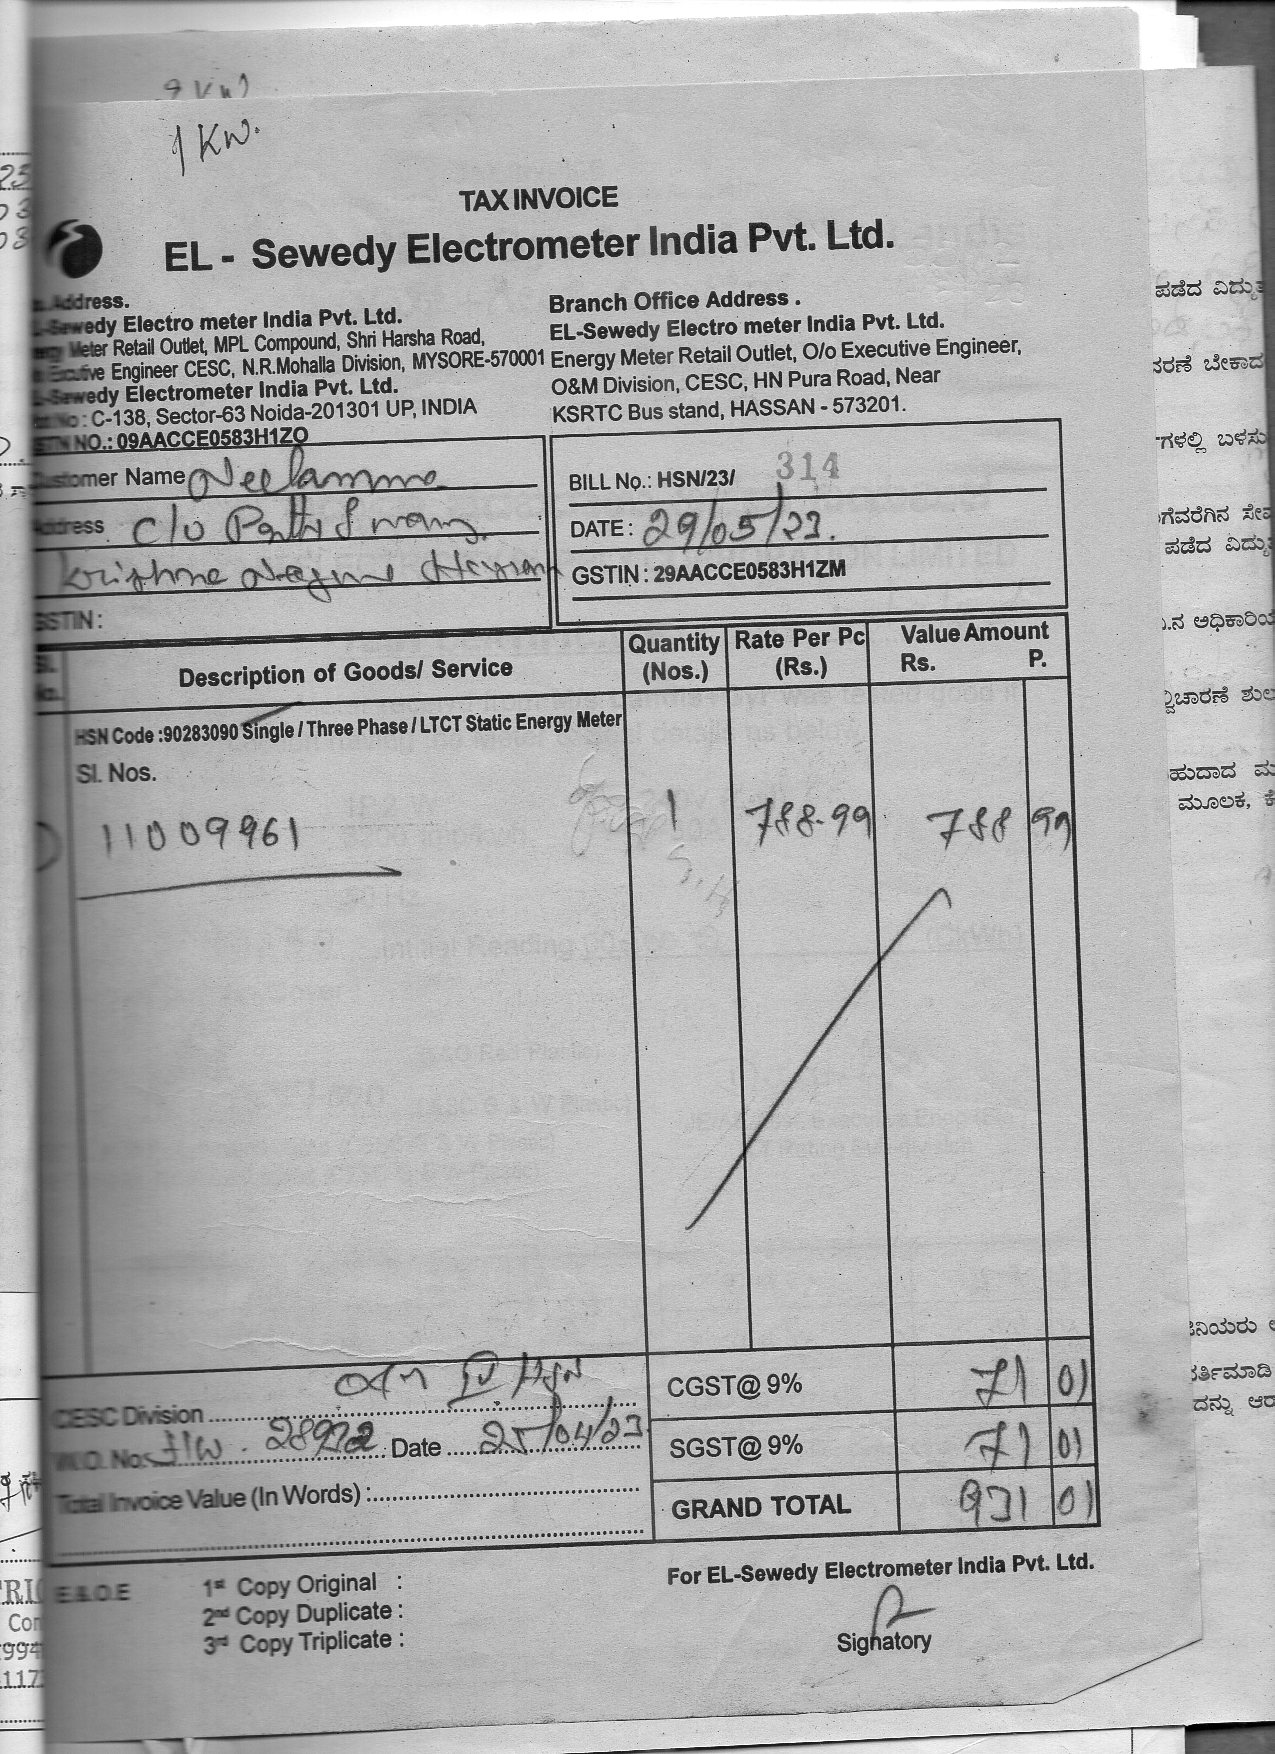 1 KW.
TAX INVOICE
EL - Sewedy Electrometer India Pvt. Ltd.
Address.
Sewedy Electro meter India Pvt. Ltd.
Meter Retail Outlet, MPL Compound, Shri Harsha Road,
Engineer CESC, N.R.Mohalla Division, MYSORE-570001
Sewedy Electrometer India Pvt. Ltd.
: C-138, Sector-63 Noida-201301 UP, INDIA
GSTN NO.: 09AACCE0583H1ZO
Branch Office Address .
EL-Sewedy Electro meter India Pvt. Ltd.
Energy Meter Retail Outlet, O/o Executive Engineer,
O&M Division, CESC, HN Pura Road, Near
KSRTC Bus stand, HASSAN - 573201.
Customer Name Neelamma
Address C/o
Krishna Hassan
GSTIN :
BILL No.: HSN/23/ 314
DATE : 29/05/23.
GSTIN : 29AACCE0583H1ZM
Sl. No. Description of Goods/ Service Quantity (Nos.) Rate Per Pc (Rs.) Value Amount Rs. P.
HSN Code :90283090 Single / Three Phase / LTCT Static Energy Meter
Sl. Nos.
11009961 1 788-99 788 99
CESC Division O&M IV HSN
CGST@ 9% 71 01
W.O. No. Date 25/04/23
SGST@ 9% 71 01
Total Invoice Value (In Words) :
GRAND TOTAL 931 01
E & O E
1st Copy Original :
2nd Copy Duplicate :
3rd Copy Triplicate :
For EL-Sewedy Electrometer India Pvt. Ltd.
Signatory
ಪಡೆದ
ಬೇಕಾದ
ಪಡೆದ
ಮೂಲಕ,